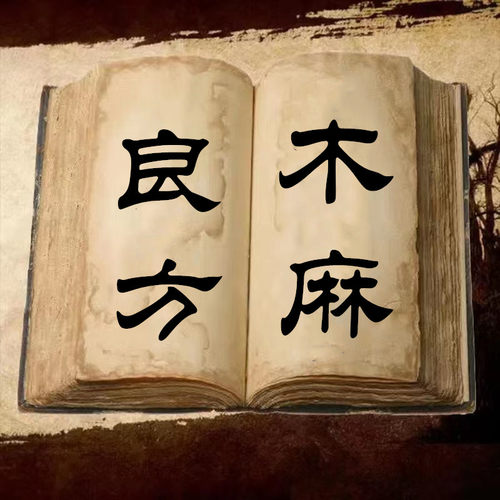 木麻
良方